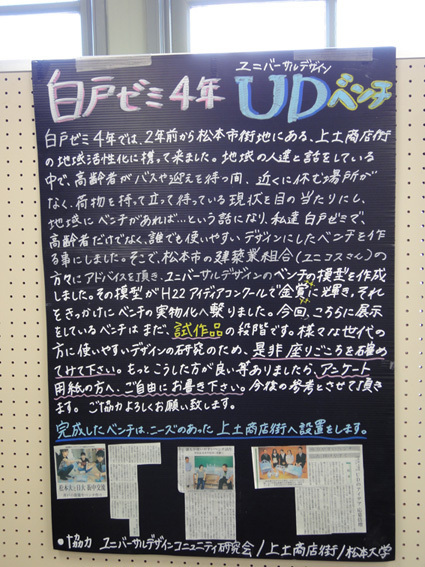 白戸ゼミ4年 UDベンチ
ユニバーサルデザイン
白戸ゼミ4年では、2年前から松本市街地にある、上土商店街
の地域活性化に携って来ました。地域の人達と話をしている
中で、高齢者がバスや迎えを待つ間、近くに休む場所が
なく、荷物を持って立って待っている現状を目の当たりにし、
地域にベンチがあれば…という話になり、私達白戸ゼミで、
高齢者だけでなく、誰でも使いやすいデザインにしたベンチを作
る事にしました。そこで、松本市の建築業組合(ユニコスさん)の
方々にアドバイスを頂き、ユニバーサルデザインのベンチの模型を作成
しました。その模型がH22アイディアコンクールで金賞に輝き、それ
をきっかけにベンチの実物化へ繋りました。今回、こちらに展示
をしているベンチはまだ、試作品の段階です。様々な世代の
方に使いやすいデザインの研究のため、是非座りごこちを確め
てみて下さい。もっとこうした方が良い等ありましたら、アンケート
用紙の方へ、ご自由にお書き下さい。今後の参考とさせて頂き
ます。ご協力よろしくお願い致します。
完成したベンチは、ニーズのあった上土商店街へ設置をします。
•協力 ユニバーサルデザインコミュニティ研究会/上土商店街/松本大学